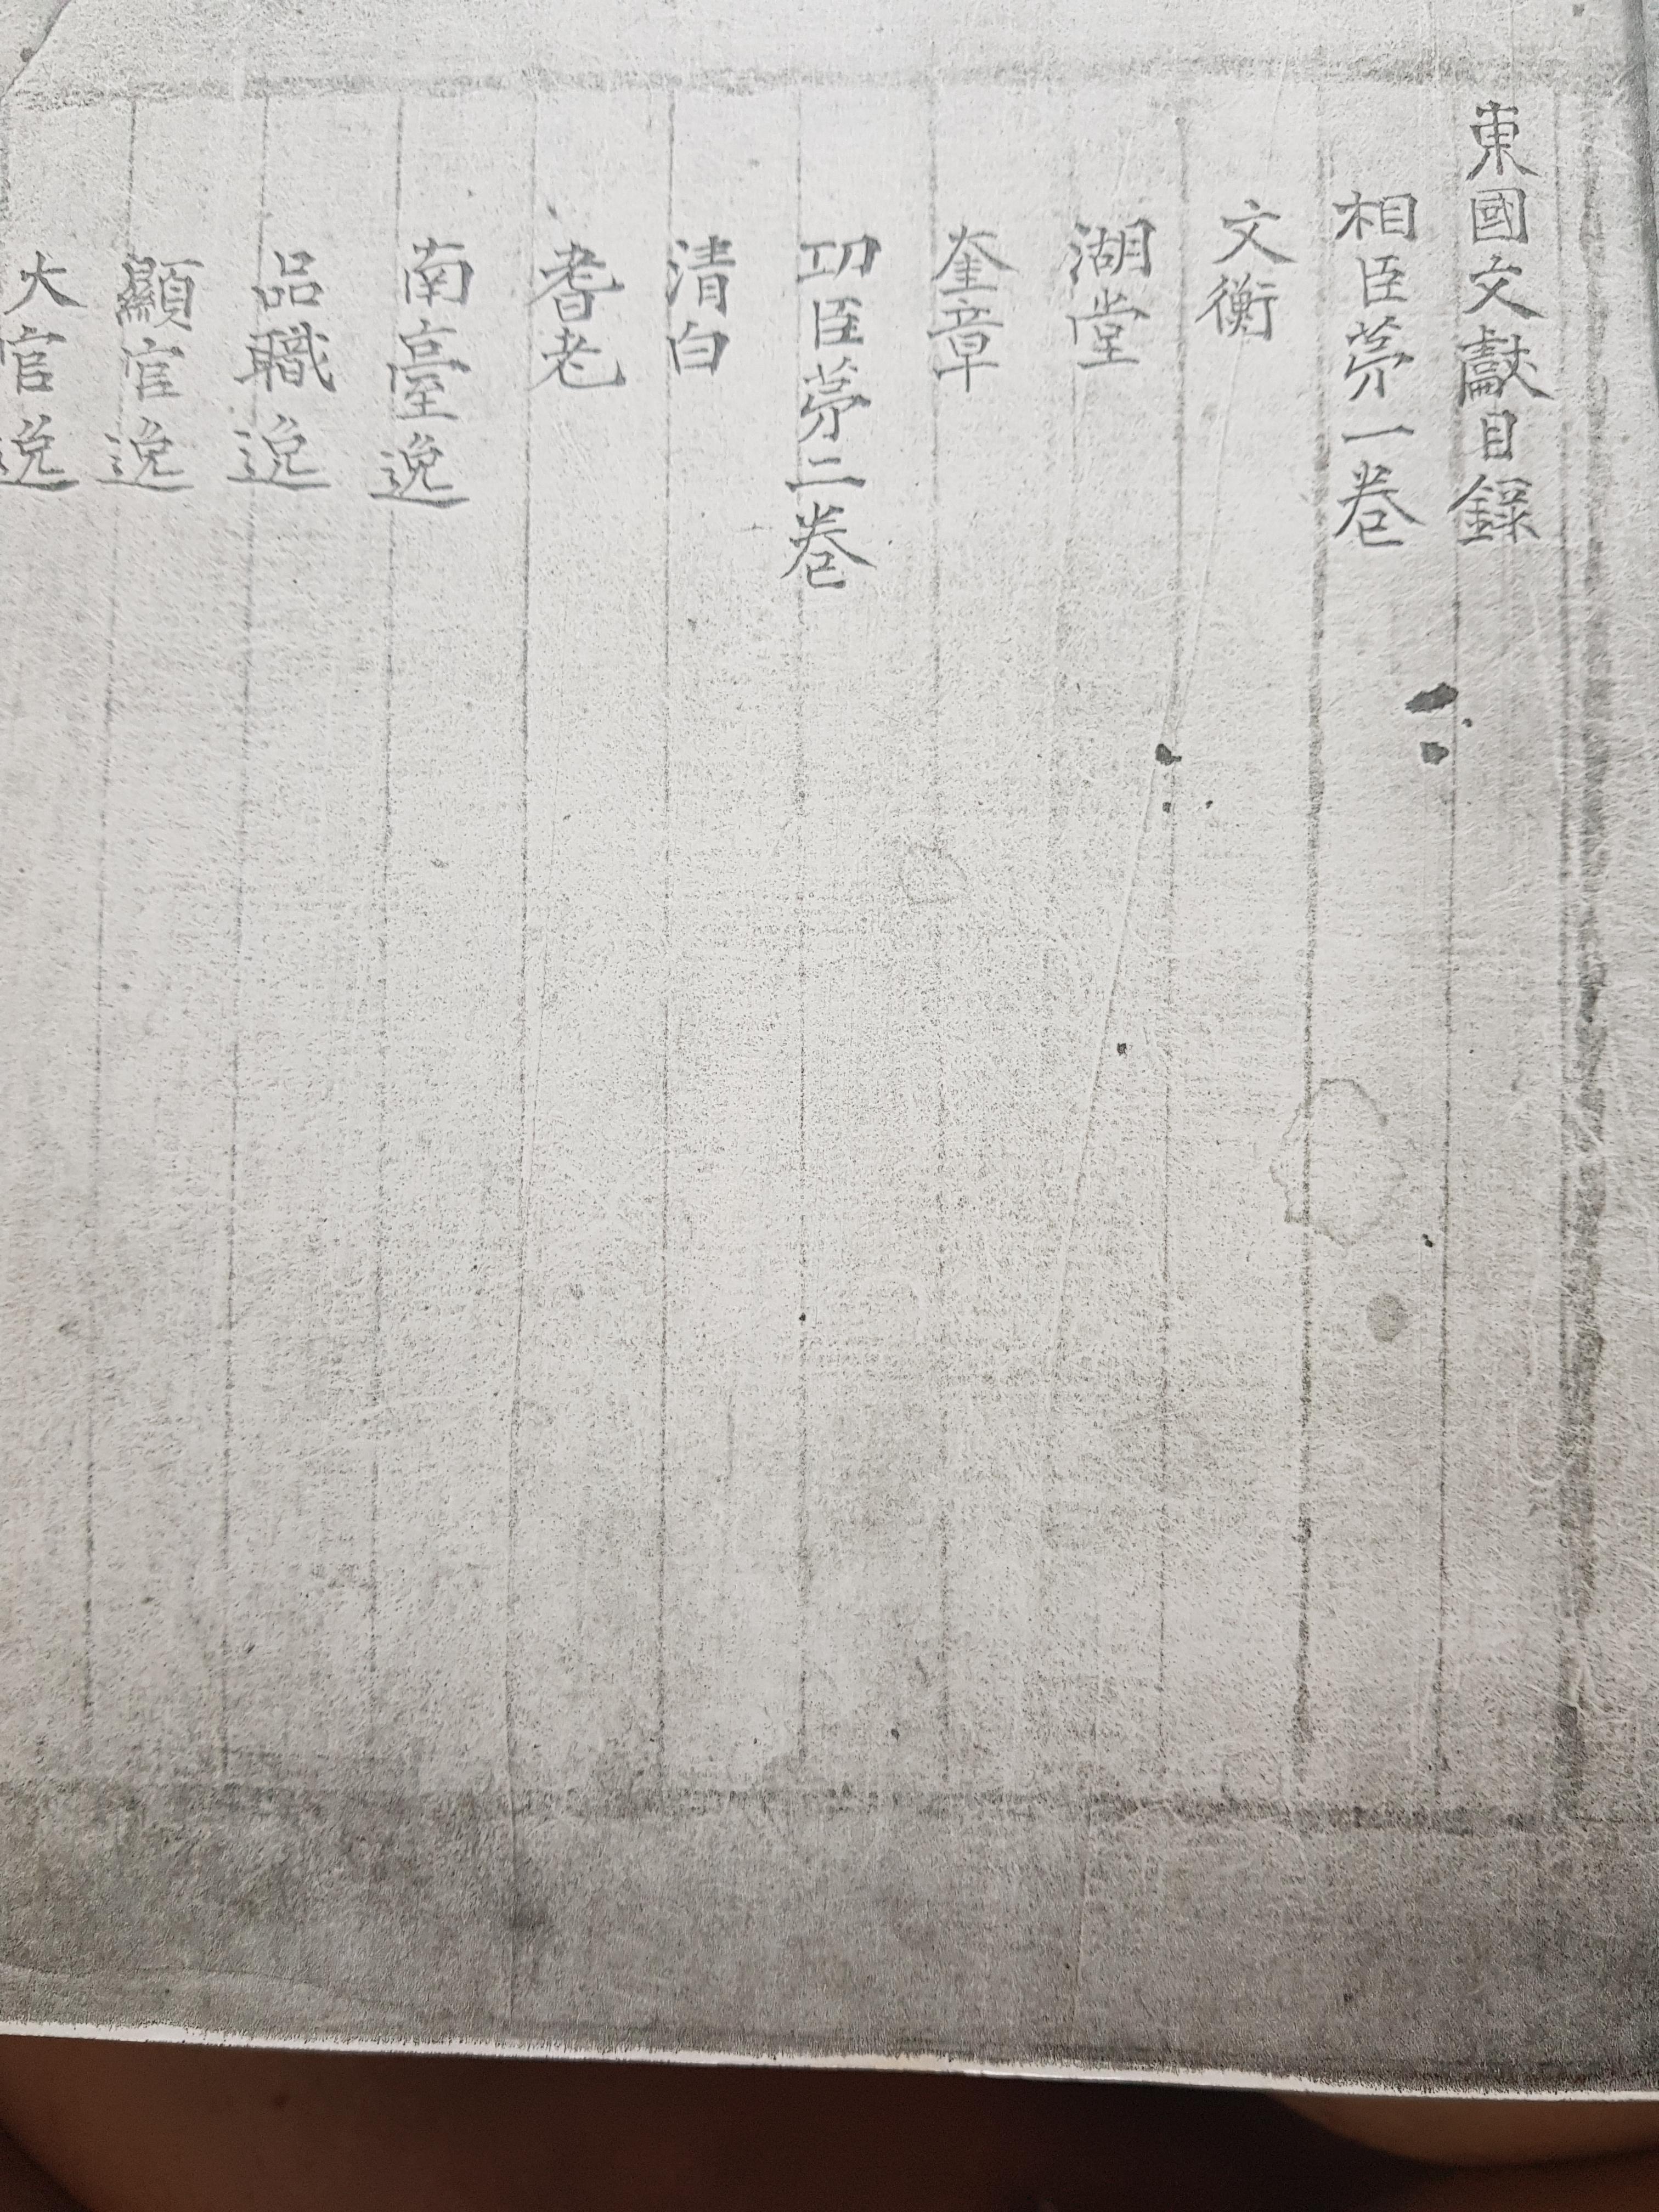 東國文獻目錄
相臣苐一卷
文衡
湖堂
奎章
功臣苐二卷
清白
耆老
南臺逸
品職逸
顯官逸
大官逸